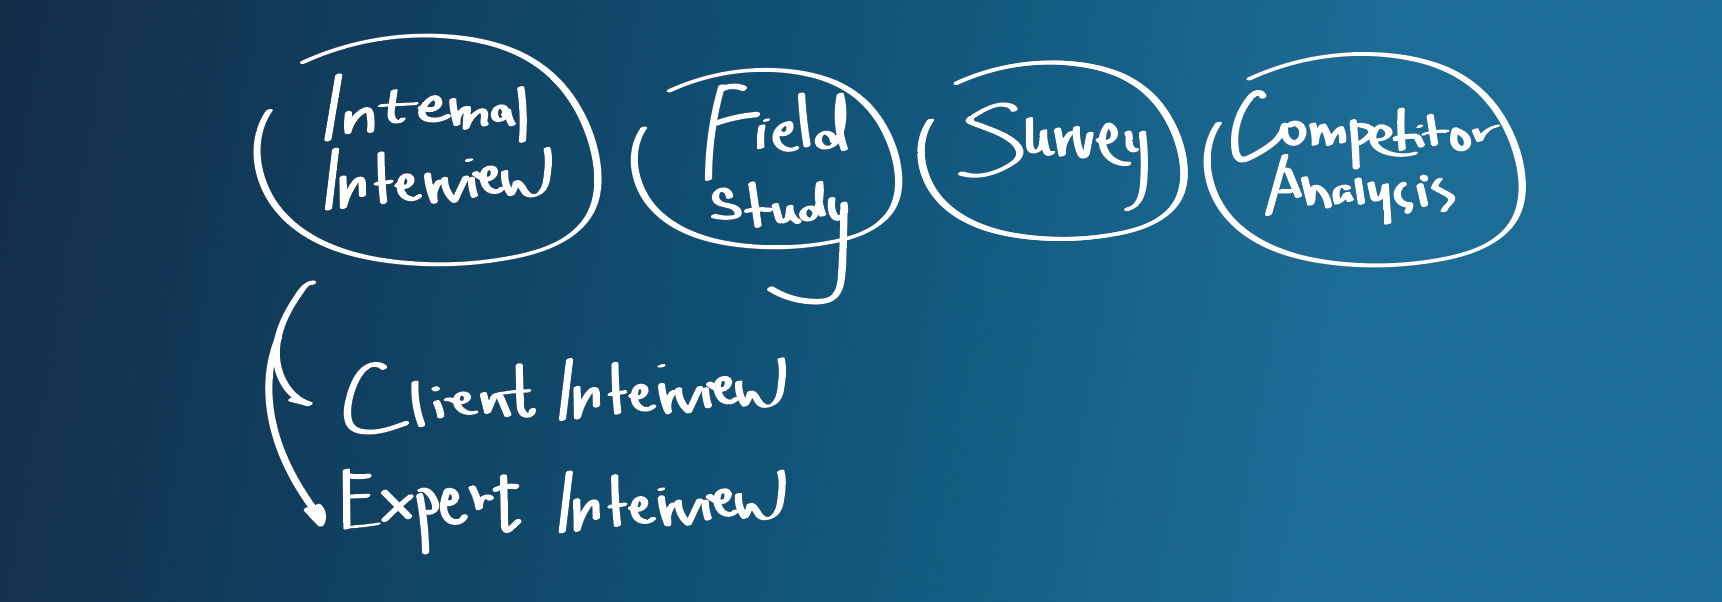 Internal
Interview
Field
Study
Survey
Competitor
Analysis
Client Interview
Expert Interview